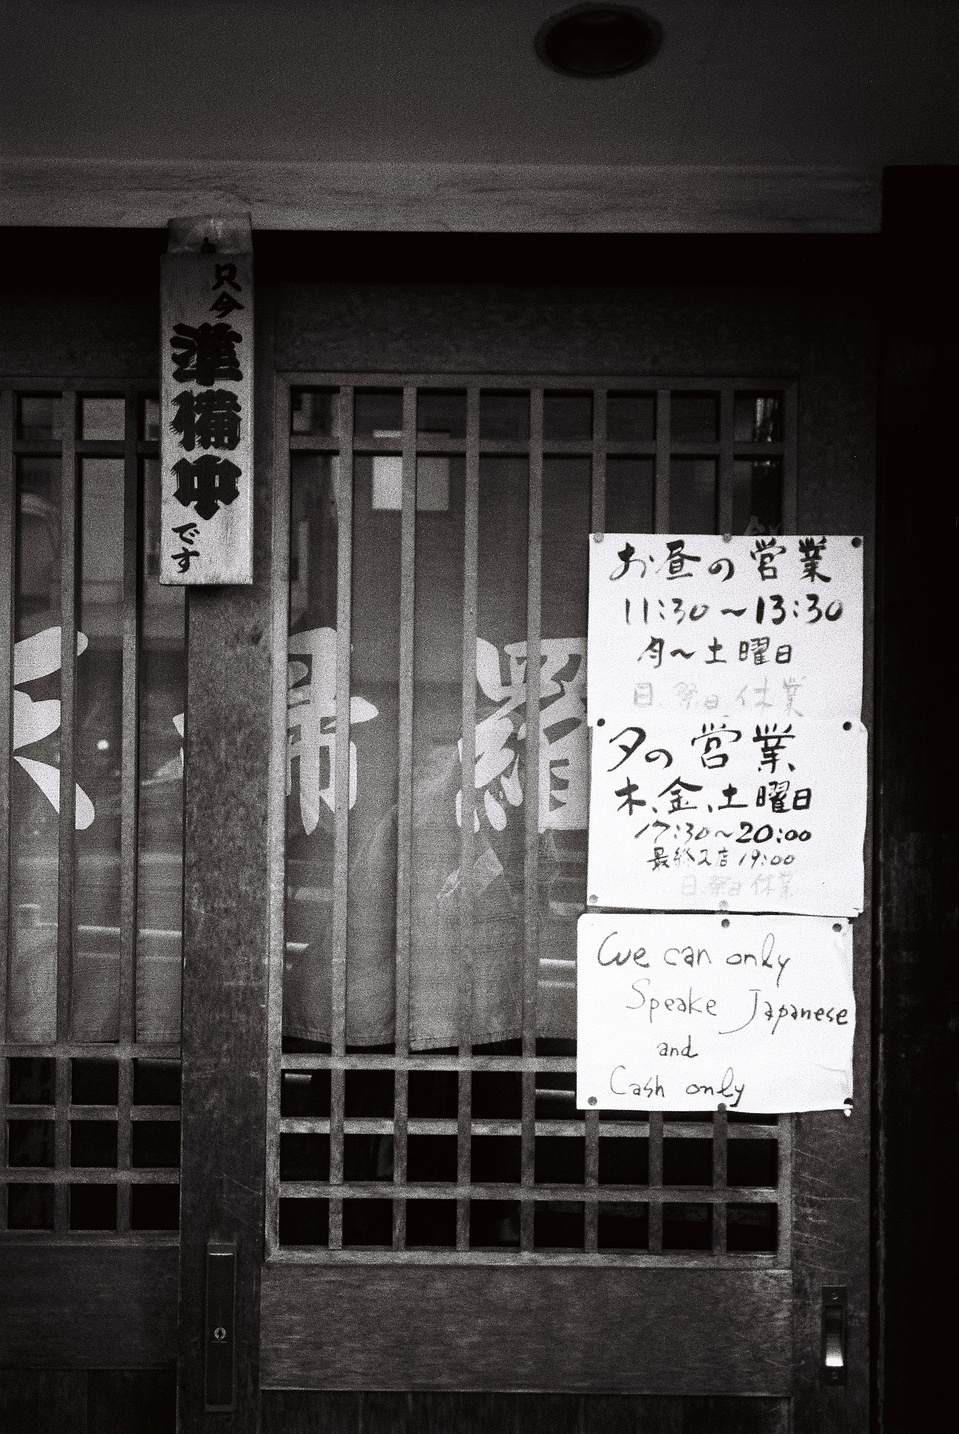 只今
準備中
です
天婦羅
お昼の営業
11:30～13:30
月～土曜日
日.祭日休業
夕の営業
木、金、土曜日
17:30～20:00
最終入店19:00
日.祭日休業
We can only
Speake Japanese
and
Cash only